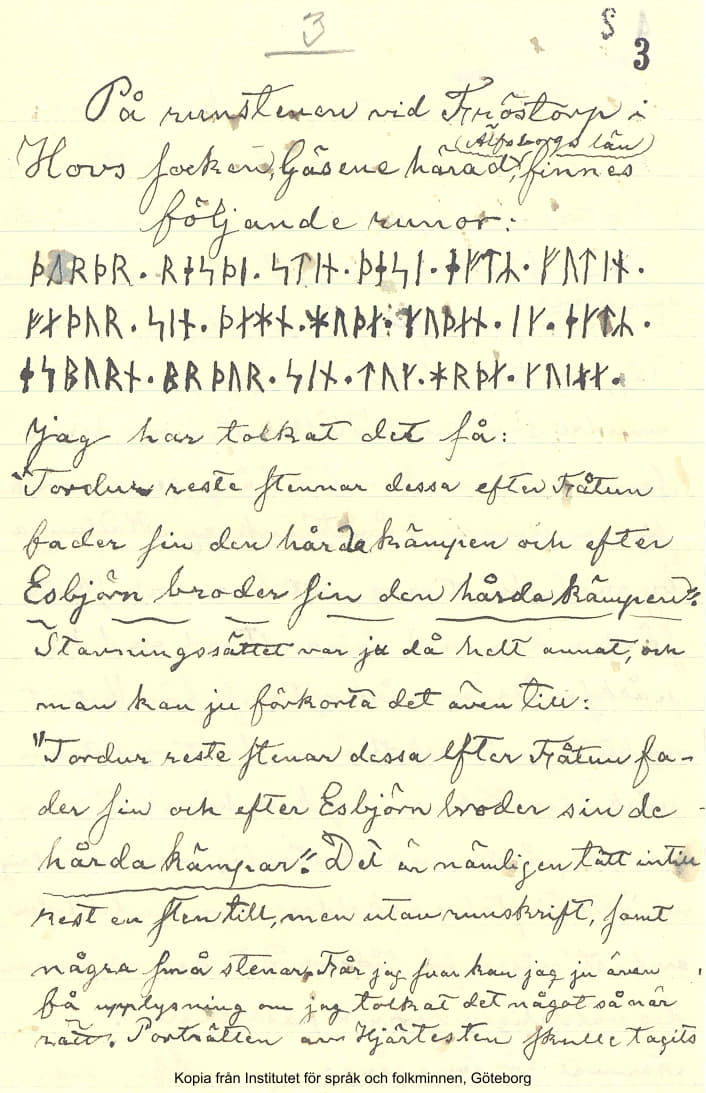 3
S
3
På runstenen vid Fröstorp i
(Älfsborgs län)
Hovs socken, Gäsene härad, finnes
följande runor:
ᚦᚢᚱᚦᚱ. ᚱᛅᛋᚦᛁ. ᛋᛏᛁᚾ. ᚦᛅᛋᛁ. ᛅᚠᛏᛦ. ᚠᚢᛏᛁᚾ.
ᚠᛅᚦᚢᚱ. ᛋᛁᚾ. ᚦᛅᚼᚾ. ᚼᚢᚦᛅ. ᚴᚢᚦᛅᚾ. ᛁᚴ. ᛅᚠᛏᛦ.
ᛅᛋᛒᚢᚱᚾ. ᛒᚱᚦᚢᚱ. ᛋᛁᚾ. ᛏᚢᚴ. ᚼᚱᚦᛅ. ᚴᚢᛁᛅᛅ.
Jag har tolkat det så:
"Tordur reste stennar dessa efter Fråtun
fader sin den hårda kämpen och efter
Esbjörn broder sin den hårda kämpen".
Stavningssättet var ju då helt annat, och
man kan ju förkorta det även till:
"Tordur reste stenar dessa efter Fråtun fa-
der sin och efter Esbjörn broder sin de
hårda kämpar". Det är nämligen tätt intill
rest en sten till, men utan runskrift, samt
några små stenar. Får jag svar kan jag ju även
få upplysning om jag tolkat det något så när
rätt. Porträtten av Hjärtesten skulle tagits
Kopia från Institutet för språk och folkminnen, Göteborg